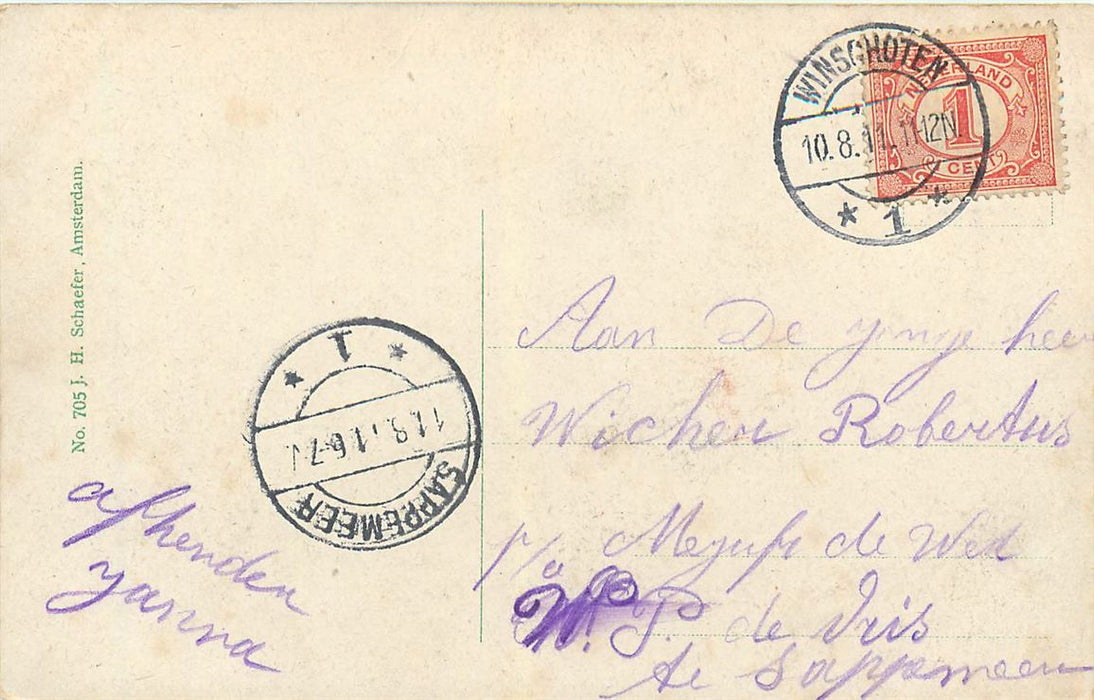 No. 705 J. H. Schaefer, Amsterdam.
WINSCHOTEN
10.8.11. 11-12N
* 1 *
NEDERLAND
1
CENT
* 1 *
11.8.11 6-7 V
SAPPEMEER
Aan De jonge heer
Wicher Robertus
p/a Mejufr de Wed
W. P. de Vris
te Sappemeer
afhender
Janna